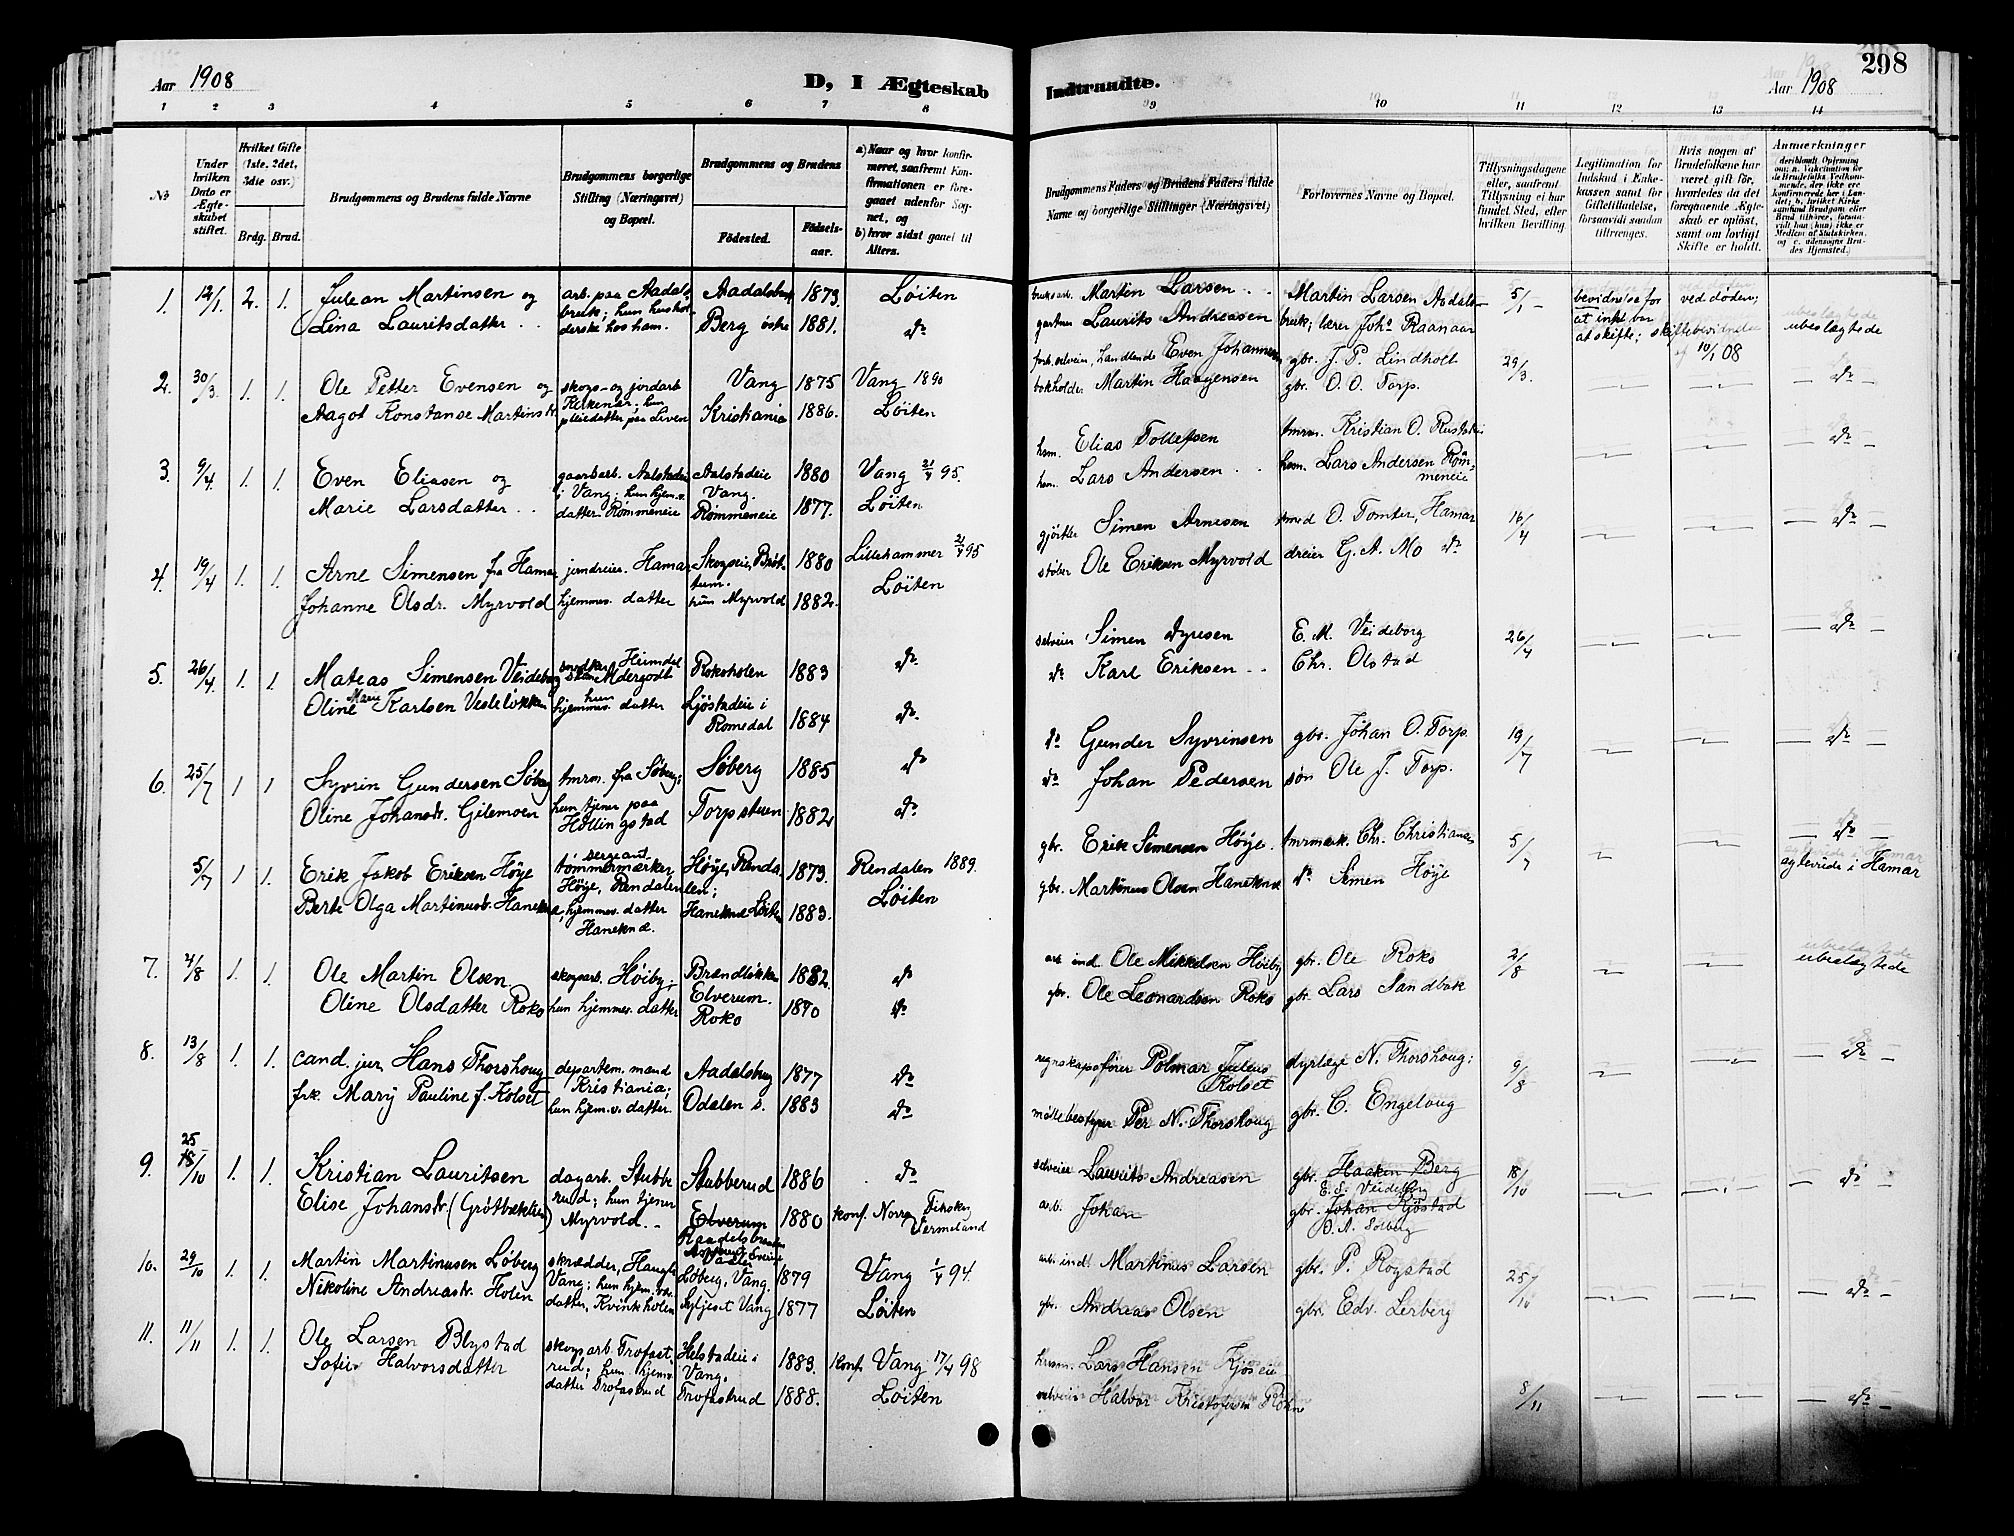 Aar 1908
D, I Ægteskab
Indtraadte.
298
Aar 1908
1 2 3 4 5 6 7 8 9 10 11 12 13 14
No
Under hvilken Dato er Ægteskabet stiftet.
Hvilket Gifte (1ste, 2det, 3die osv.)
Brdg. Brud.
Brudgommens og Brudens fulde Navne
Brudgommens borgerlige Stilling (Næringsvei) og Bopæl.
Brudgommens og Brudens
Födested.
Födselsaar.
a) Naar og hvor konfirmeret, saafremt Konfirmationen er foregaaet udenfor Sognet, og
b) hvor sidst gaaet til Alters.
Brudgommens Faders og Brudens Faders fulde Navne og borgerlige Stillinger (Næringsvei)
Forlovernes Navne og Bopæl.
Tillysningsdagene eller, saafremt Tillysning ei har fundet Sted, eller hvilken Bevilling
Legitimation for Indskud i Enkekassen samt for Giftetilladelse, forsaavidt saadan tiltrænges.
Hvis nogen af Brudefolkene har været gift för, hvorledes da det foregaaende Ægteskab er oplöst, samt om lovligt Skifte er holdt.
Anmærkninger
1. 12/1. 2. 1. Julean Martinsen og
Lina Lauritsdatter . .
arb. paa Aadals
bruk; hun hushol-
derske hos ham.
Aadalsbruk 1873. Løiten
Berg østre 1881. do
bruksarb. Martin Larsen . .
gartner Laurits Andreasen
Martin Larsen Aadals-
bruk; lærer Johs Raanaas
5/1
bevidnelse for
at intet var
at skifte; skiftebevidnelse
ved døden;
af 10/1 08
ubeslægtede
2. 30/3. 1. 1. Ole Petter Evensen og
Aagot Konstanse Martinsdr.
skogs- og jordarb
pleiedatter paa Liven
Vang 1875 Vang 1890
Kristiania 1886. Løiten
Even Johannesen
bokholder Martin Haagensen
gbr. J. P. Lindholt
gbr. O. O. Torp.
29/3.
— do —
3. 9/4. 1. 1. Even Eliasen og
Marie Larsdatter . .
gaardsarb. Aalstadeie
i Vang; hun hjem.v.
datter Rømmeneie
Aalstadeie 1880 Vang 21/4 95.
Vang.
Rømmeneie 1877. Løiten
hsm. Elias Tollefsen
hsm. Lars Andersen . .
tmrm. Kristian O. Rustadeie
hsm. Lars Andersen Røm-
meneie
— do —
4. 19/4 1. 1. Arne Simensen fra Hamar
Johanne Olsdr. Myrvold
jerndreier. Hamar
hjemmev. datter
Skogseie, Brøt- 1880 Lillehammer 21/4 95
tum.
hun Myrvold 1882. Løiten
gjørtler Simen Arnesen
støber Ole Eriksen Myrvold
smed O. Tomter, Hamar
dreier G. A. Mo do
16/4
— do —
5. 26/4. 1. 1. Mateas Simensen Veideborg
Oline Marie Karlsen Vesteløkken
snedker Heimdal
hun
hjemmev. datter
Rokoholen 1883 do
Ljøstadeie i
Romedal 1884 do
selveier Simen Syvesen
do Karl Eriksen . .
E. M. Veideborg
Chr. Olstad
26/4
— do —
6. 25/7 1 1 Syvrin Gundersen Søberg
Oline Johansdr. Gilemoen
tmrm. fra Søberg;
hun tjener paa
Hollingstad
Søberg 1885 do
Torpstuen 1882 do
do Gunder Syvrinsen
do Johan Pedersen
gbr. Johan O. Torp.
søn Ole J. Torp.
19/7
— do —
5/7 1 1. Erik Jakob Eriksen Høye
Berte Olga Martinusdr. Haneknæ
sergeant,
tømmermærker
Høye, Rendalen
hjemmev. datter
Haneknæ.
Høye, Renda 1873. Rendalen 1889.
len;
Haneknæ Løiten 1883. Løiten
gbr. Erik Simensen Høye.
gbr. Martinus Olsen Haneknæ
tmrmærk. Chr. Christiansen
do Simen Høye
5/7
— do —
agtevide i Hamar
7. 4/8 1. 1. Ole Martin Olsen
Oline Olsdatter Roko
skogsarb. Høiby;
hun hjemmev. datter
Brændløkken 1882. do
Elverum.
Roko 1870 do
arb. ind Ole Mikkelsen Høiby
gbr. Ole Leonardsen Roko
gbr. Ole Roko
gbr. Lars Sandbak
2/8
ubeslægtede
8. 13/8 1. 1. cand. jur Hans Thorshoug
frk. Mary Pauline f. Kolset
departem. mand
Kristiania;
hun hjem.v. datter.
Aadalsbrug 1877 do
Odalen s. 1883 do
regnskapsfører Polmar Julius
Kolset
møllebestyrer Per N. Thorshoug
dyrlæge N. Thorshoug;
gbr. C. Engeloug
9/8
— do —
9. 25/10 1. 1. Kristian Lauritsen
Elise Johansdr. (Grøtbækken)
dagarb. Stubbe
rud; hun tjener
Myrvold. -
Stubberud 1886 do
Elverum 1880 konf. Norra Finskoga
Vermeland
selveier Laurits Andreasen
arb. Johan
gbr. Haaken Berg
E. S. Veideborg
gbr. Johan Kjøstad
O. A. Solberg
18/10
— do —
10. 29/10 1. 1. Martin Martinusen Løberg
Nikoline Andreasdr. Holen
skrædder, Haugle
Vang; hun hjem. v.
datter, Kvinkholen
Løberg, Vang. 1879 Vang 1/4 94.
Syljeset Vang 1877 Løiten
arb. ind. Martinus Larsen
gbr. Andreas Olsen
gbr. P. Rogstad
gbr. Edv. Lerberg
25/10
— do —
11. 11/11 1. 1. Ole Larsen Blystad
Sofie Halvorsdatter
skogsarb. Trofast-
rud; hun hjem.v.
datter, Trofastrud
Helstadeie i 1883. konf. Vang 17/4 98
Vang.
Trofastrud 1888. Løiten
husm. Lars Hansen Kjøseie
selveier Halvor Kristofersen
8/11
— do —